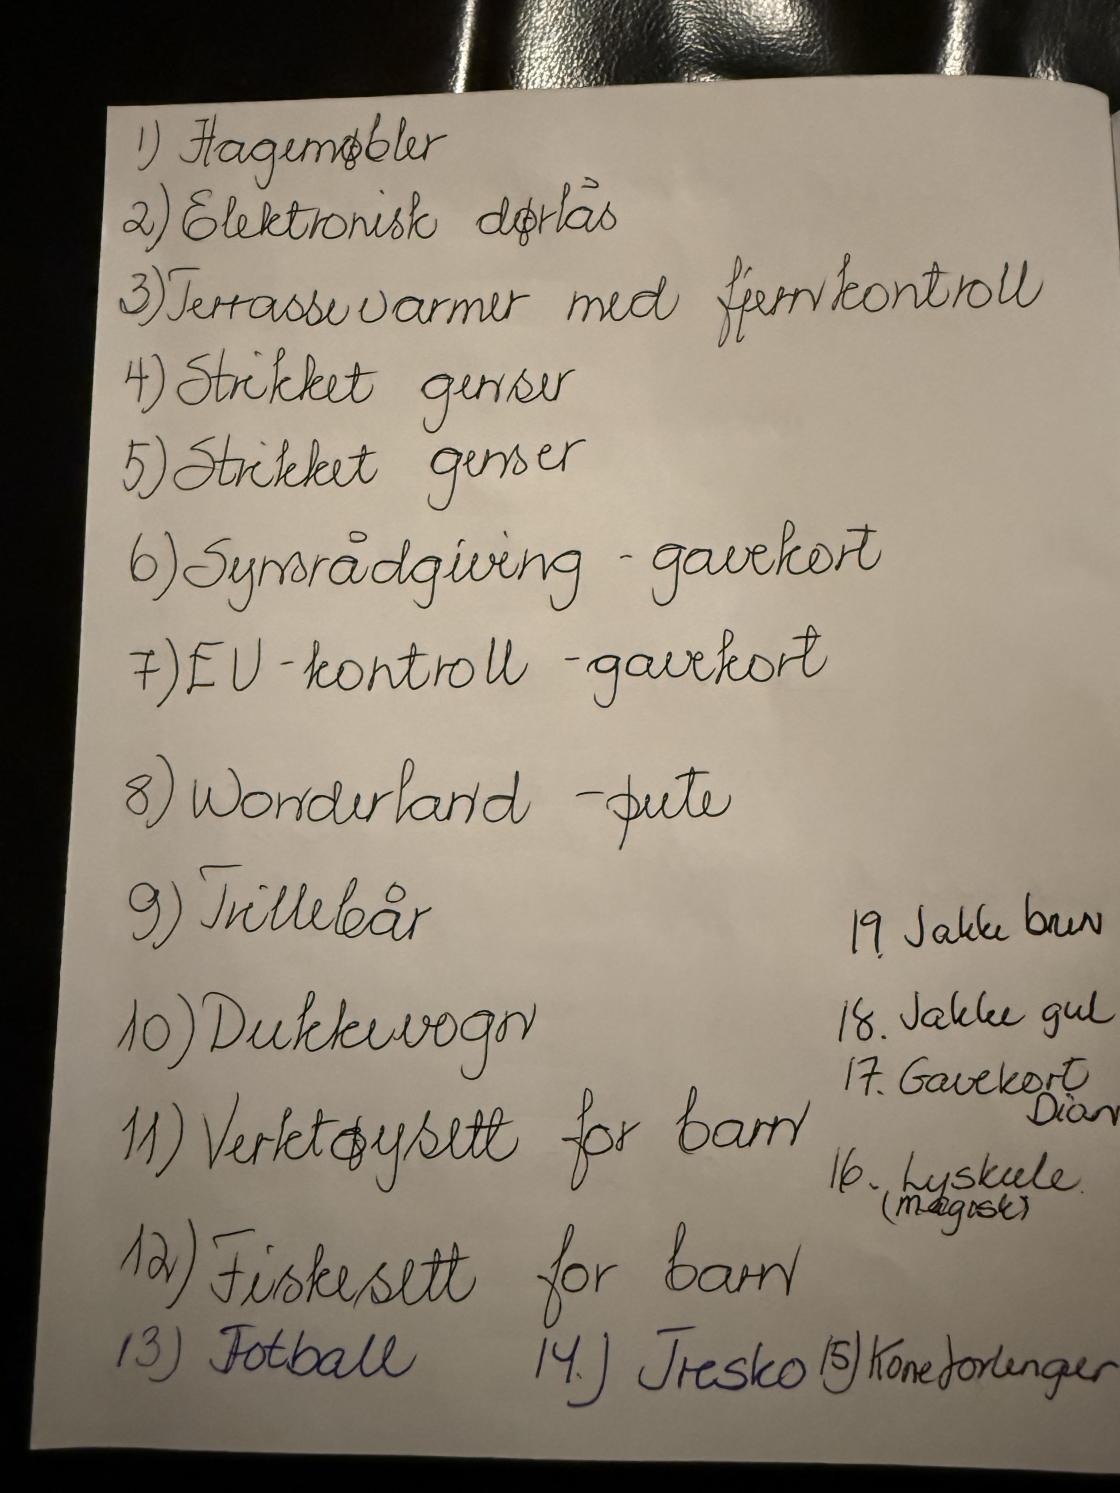 1) Hagemøbler
2) Elektronisk dørlås
3) Terrassevarmer med fjernkontroll
4) Strikket genser
5) Strikket genser
6) Synsrådgiving - gavekort
7) EU - kontroll - gavekort
8) Wonderland - pute
9) Trillebår
10) Dukkevogn
11) Verktøysett for barn
12) Fiskesett for barn
13) Fotball 14.) Tresko 15) Koneforlenger
19. Jakke brun
18. Jakke gul
17. Gavekort
Dian
16. Lyskule
(magisk)